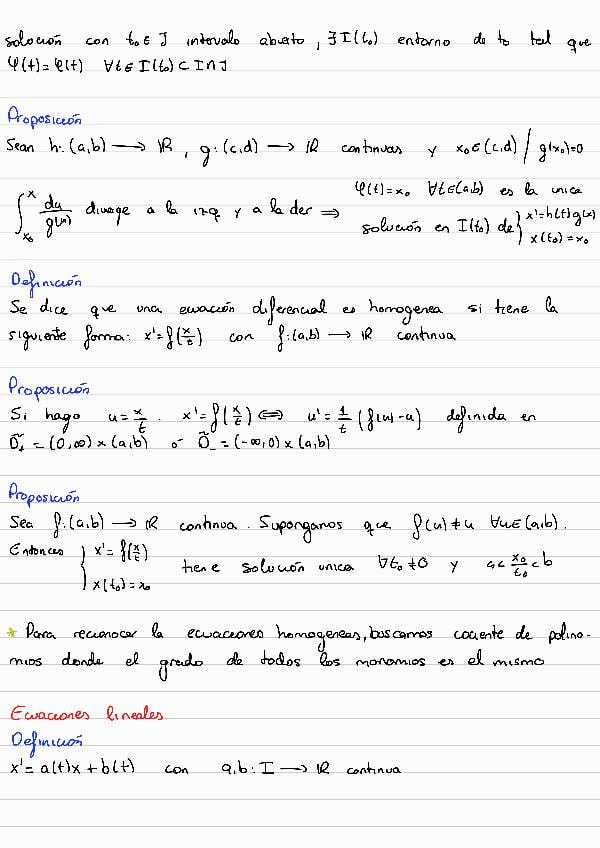 solución con t₀ ∈ J intervalo abierto, ∃ I(t₀) entorno de t₀ tal que
φ(t) = φ(t) ∀t ∈ I(t₀) ⊂ I ∩ J
Proposición
Sean h: (a,b) → ℝ, g: (c,d) → ℝ continuas y x₀ ∈ (c,d) / g(x₀)=0
∫_{x₀}^{x} du/g(u) diverge a la izq y a la der ⇒ φ(t)=x₀ ∀t∈(a,b) es la unica
solución en I(t₀) de { x'=h(t)g(x)
x(t₀)=x₀
Definición
Se dice que una ecuación diferencial es homogenea si tiene la
siguiente forma: x'=f(x/t) con f: (a,b) → ℝ continua
Proposición
Si hago u = x/t. x'=f(x/t) ⟺ u' = 1/t (f(u)-u) definida en
Õ₊ = (0,∞)×(a,b) o Õ₋ = (-∞,0)×(a,b)
Proposición
Sea f: (a,b) → ℝ continua. Supongamos que f(u)≠u ∀u∈(a,b).
Entonces { x' = f(x/t)
x(t₀)=x₀ tiene solución unica ∀t₀≠0 y a< x₀/t₀ <b
* Para reconocer la ecuaciones homogeneas, buscamos cociente de polino-
mios donde el grado de todos los monomios es el mismo
Ecuaciones lineales
Definición
x' = a(t)x + b(t) con a,b: I → ℝ continua